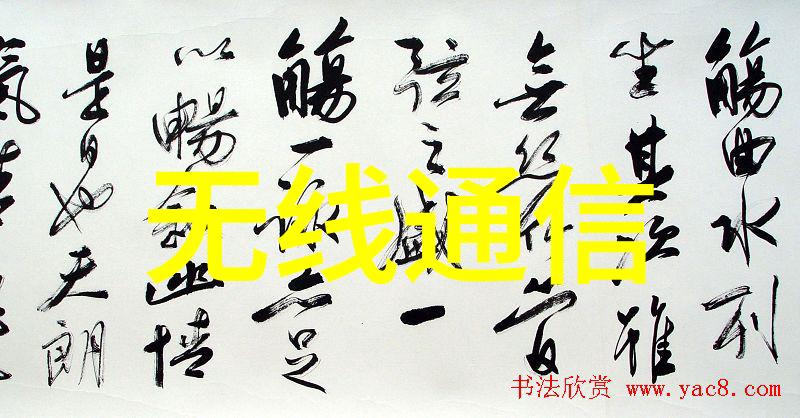 觴曲水列
坐其次雖
無絲竹管
弦之盛一
觴一詠亦足
以暢敘幽情
是日也天朗
氣清
无线通信
书法欣赏 www.yac8.com